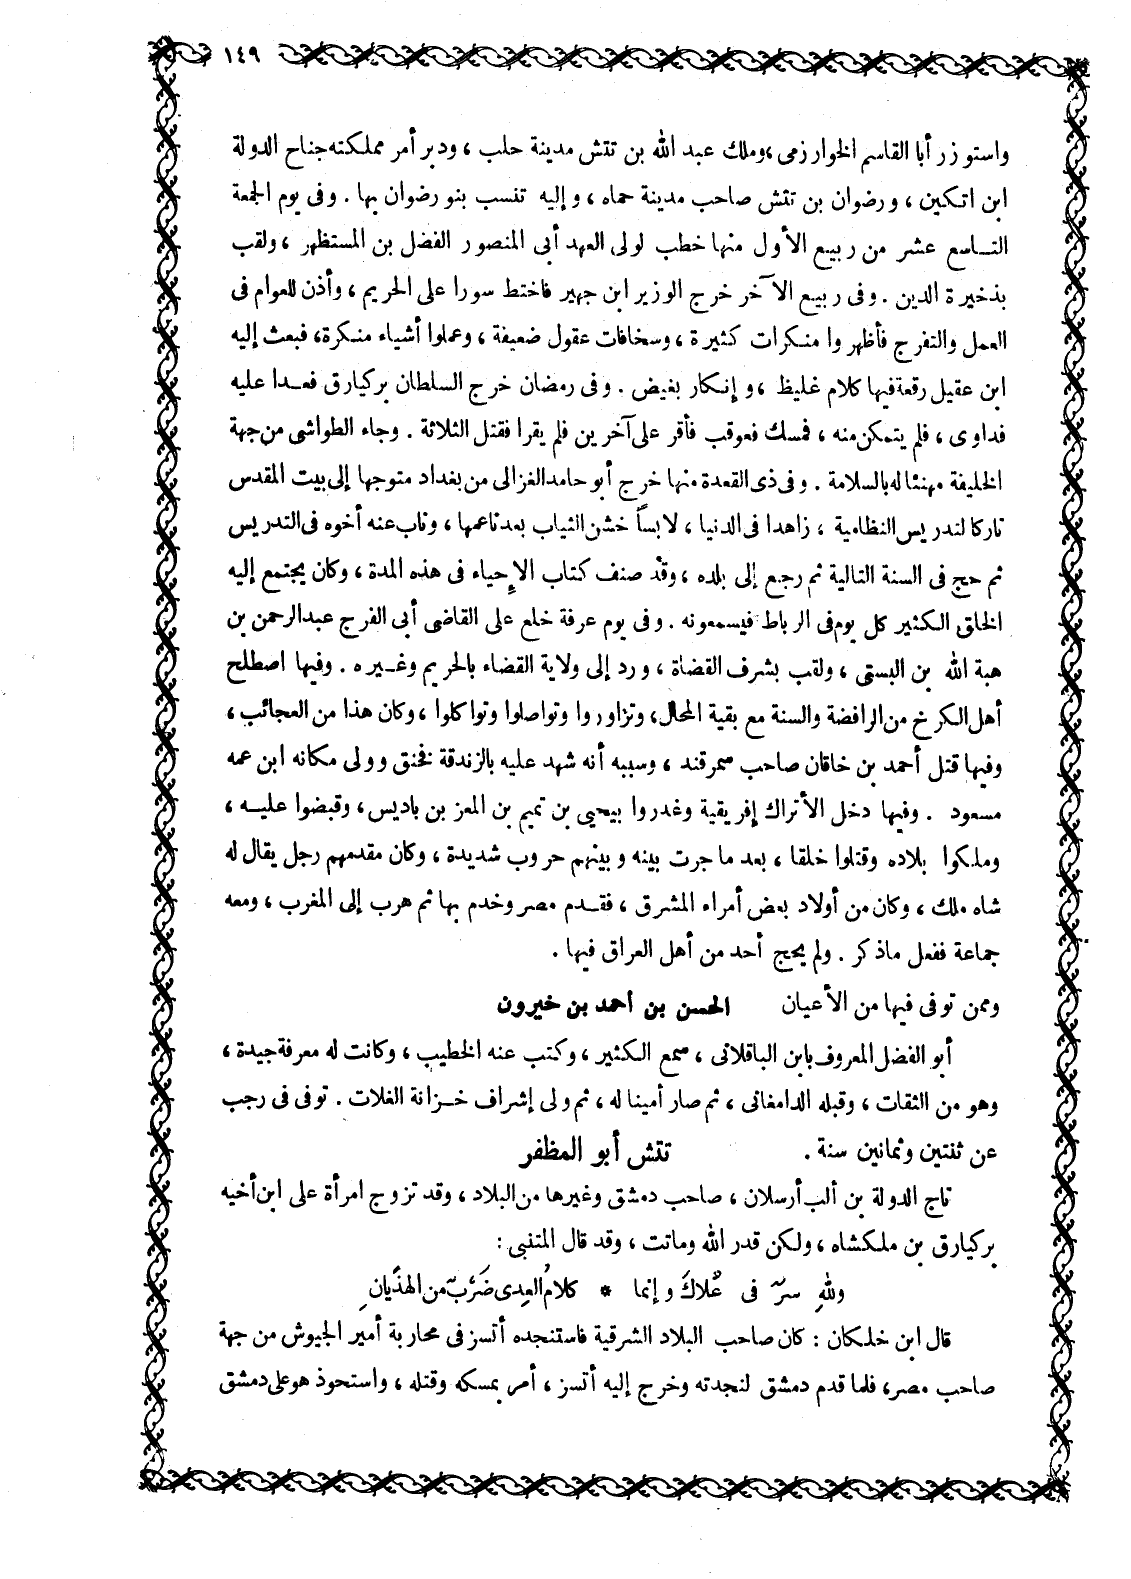 ١٤٩
واستوزر أبا القاسم الخوارزمى ، وملك عبد الله بن تتش مدينة حلب ، ودبر أمر مملكته جناح الدولة
ابن اتكين ، ورضوان بن تتش صاحب مدينة حماه ، وإليه تنسب بنو رضوان بها . وفى يوم الجمعة
التاسع عشر من ربيع الأول منها خطب لولى العهد أبى المنصور الفضل بن المستظهر ، ولقب
بذخيرة الدين . وفى ربيع الآخر خرج الوزير ابن جهير فاختط سورا على الحريم ، وأذن للعوام فى
العمل والتفرج فأظهروا منكرات كثيرة ، وسخافات عقول ضعيفة ، وعملوا أشياء منكرة ، فبعث إليه
ابن عقيل رقعة فيها كلام غليظ ، وإنكار بغيض . وفى رمضان خرج السلطان بركيارق فعدا عليه
فداوى ، فلم يتمكن منه ، فمسك فعوقب فأقر على آخرين فلم يقرا فقتل الثلاثة . وجاء الطواشى من جهة
الخليفة مهنئا له بالسلامة . وفى ذى القعدة منها خرج أبو حامد الغزالى من بغداد متوجها إلى بيت المقدس
تاركا لتدريس النظامية ، زاهدا فى الدنيا ، لابساً خشن الثياب بعد ناعمها ، وناب عنه أخوه فى التدريس
ثم حج فى السنة التالية ثم رجع إلى بلده ، وقد صنف كتاب الإحياء فى هذه المدة ، وكان يجتمع إليه
الخلق الكثير كل يوم فى الرباط فيسمعونه . وفى يوم عرفة خلع على القاضى أبى الفرج عبد الرحمن بن
هبة الله بن البستى ، ولقب بشرف القضاة ، ورد إلى ولاية القضاء بالحريم وغيره . وفيها اصطلح
أهل الكرخ من الرافضة والسنة مع بقية المحال ، وتزاوروا وتواصلوا وتواكلوا ، وكان هذا من العجائب ،
وفيها قتل أحمد بن خاقان صاحب سمرقند ، وسببه أنه شهد عليه بالزندقة فخنق وولى مكانه ابن عمه
مسعود . وفيها دخل الأتراك إفريقية وغدروا بيحيى بن تميم بن المعز بن باديس ، وقبضوا عليه ،
وملكوا بلاده وقتلوا خلقا ، بعد ما جرت بينه وبينهم حروب شديدة ، وكان مقدمهم رجل يقال له
شاه ملك ، وكان من أولاد بعض أمراء المشرق ، فقدم مصر وخدم بها ثم هرب إلى المغرب ، ومعه
جماعة ففعل ماذكر . ولم يحج أحد من أهل العراق فيها .
وممن توفى فيها من الأعيان الحسن بن أحمد بن خيرون
أبو الفضل المعروف بابن الباقلانى ، سمع الكثير ، وكتب عنه الخطيب ، وكانت له معرفة جيدة ،
وهو من الثقات ، وقبله الدامغانى ، ثم صار أمينا له ، ثم ولى إشراف خزانة الغلات . توفى فى رجب
عن ثنتين وثمانين سنة . تتش أبو المظفر
تاج الدولة بن ألب أرسلان ، صاحب دمشق وغيرها من البلاد ، وقد تزوج امرأة على ابن أخيه
بركيارق بن ملكشاه ، ولكن قدر الله وماتت ، وقد قال المتنبى :
وللهِ سرٌّ فى عُلاكَ وإنما * كلامُ العِدى ضَرْبٌ من الهذَيانِ
قال ابن خلكان : كان صاحب البلاد الشرقية فاستنجده أتسز فى محاربة أمير الجيوش من جهة
صاحب مصر ، فلما قدم دمشق لنجدته وخرج إليه أتسز ، أمر بمسكه وقتله ، واستحوذ هو على دمشق